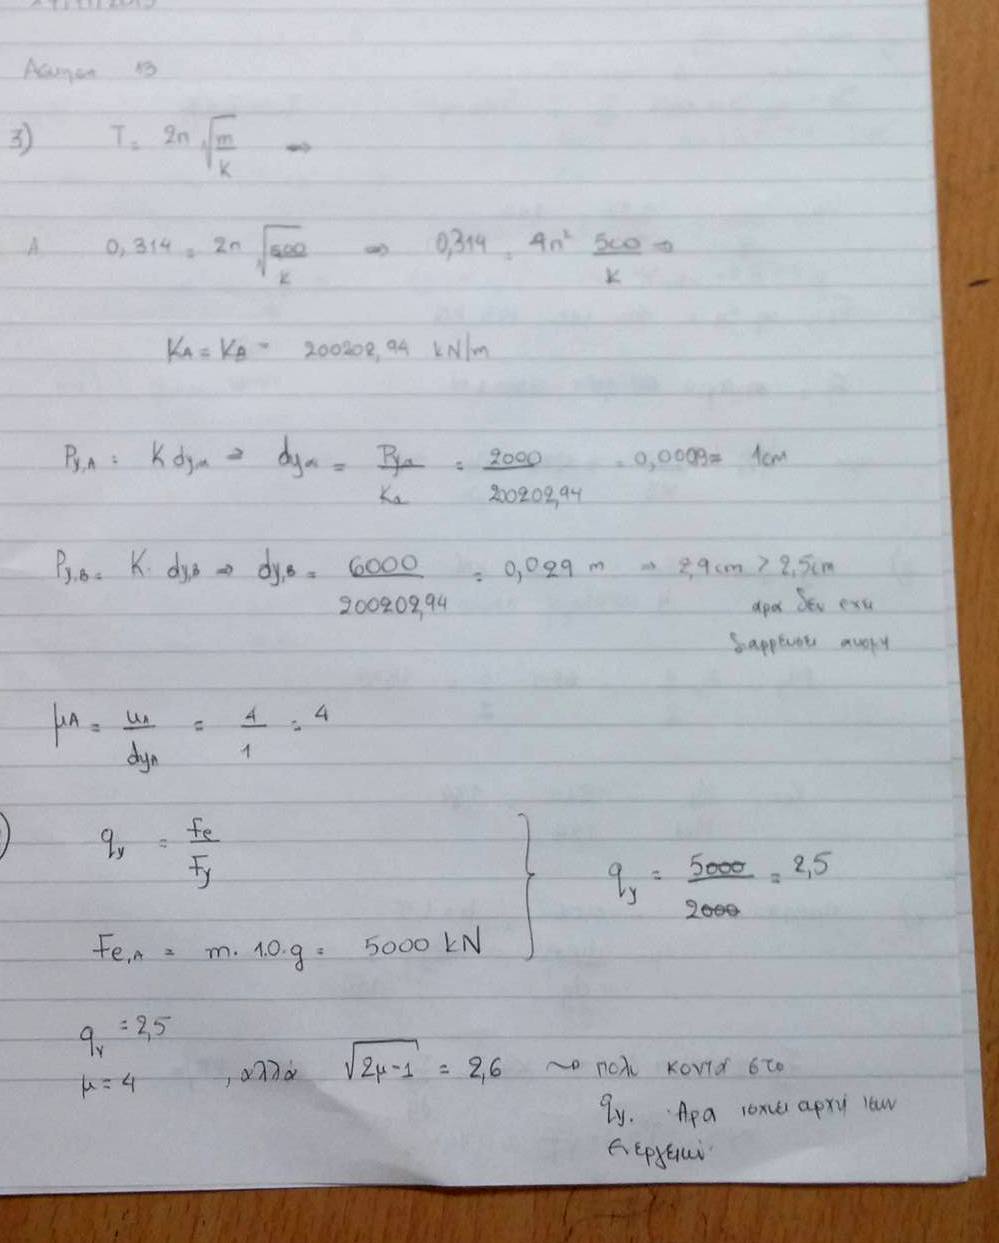 Άσκηση B
3) T = 2π √(m/k) ⇒
A 0,314 = 2π √(500/k) ⇒ 0,314 = 4π² 500/k ⇒
KA = KB = 200202,94 kN/m
Py,A = K dy,A ⇒ dy,A = Py,A/KA = 2000/200202,94 = 0,0009 = 1cm
Py,B = K · dy,B ⇒ dy,B = 6000/200202,94 = 0,029 m → 2,9cm > 2,5cm
αρα δεν εχει
διαρρευσει ακομη
μA = uA/dyA = 4/1 = 4
qy = Fe/Fy
qy = 5000/2000 = 2,5
Fe,A = m · 1.0 · g = 5000 kN
qy = 2,5
μ = 4 , αλλά √(2μ-1) = 2,6 ~> πολυ κοντά στο
qy. Αρα ισχυει αρχή ισων
ενεργειών.